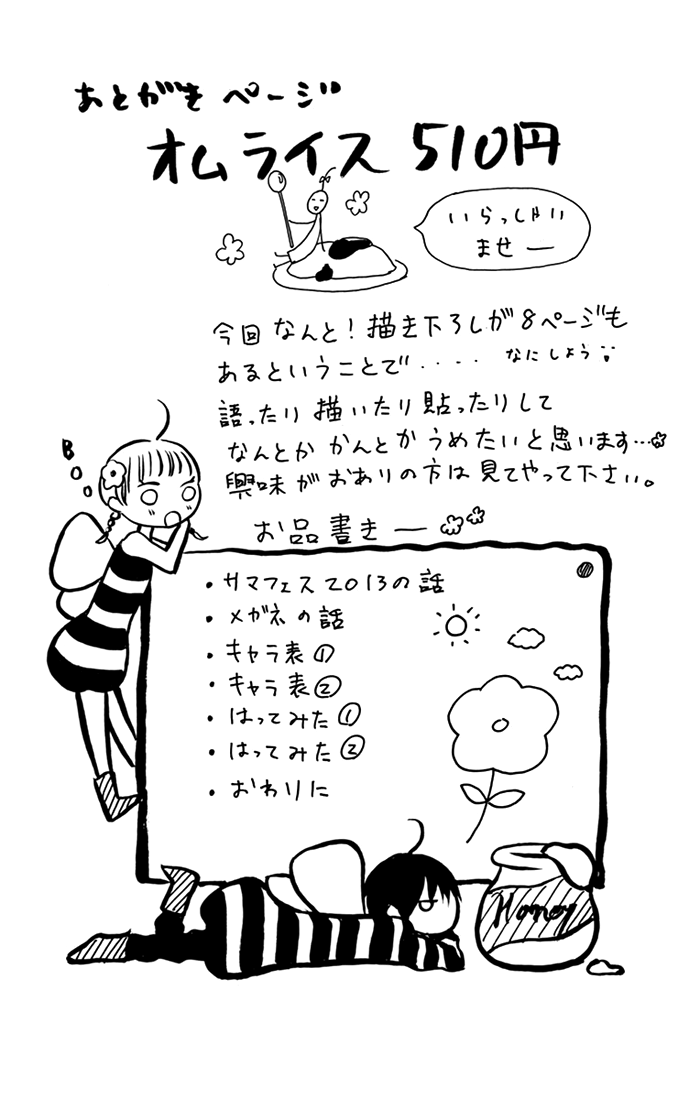 あとがきページ
オムライス 510円
いらっしゃい
ませー
今回 なんと!描き下ろしが8ページも
あるということで‥‥ なにしよう
語ったり 描いたり 貼ったりして
なんとか かんとか うめたいと思います…
興味がおありの方は見てやって下さい。
お品書きー
・サマフェス2013の話
・メガネの話
・キャラ表①
・キャラ表②
・はってみた①
・はってみた②
・おわりに
Honey